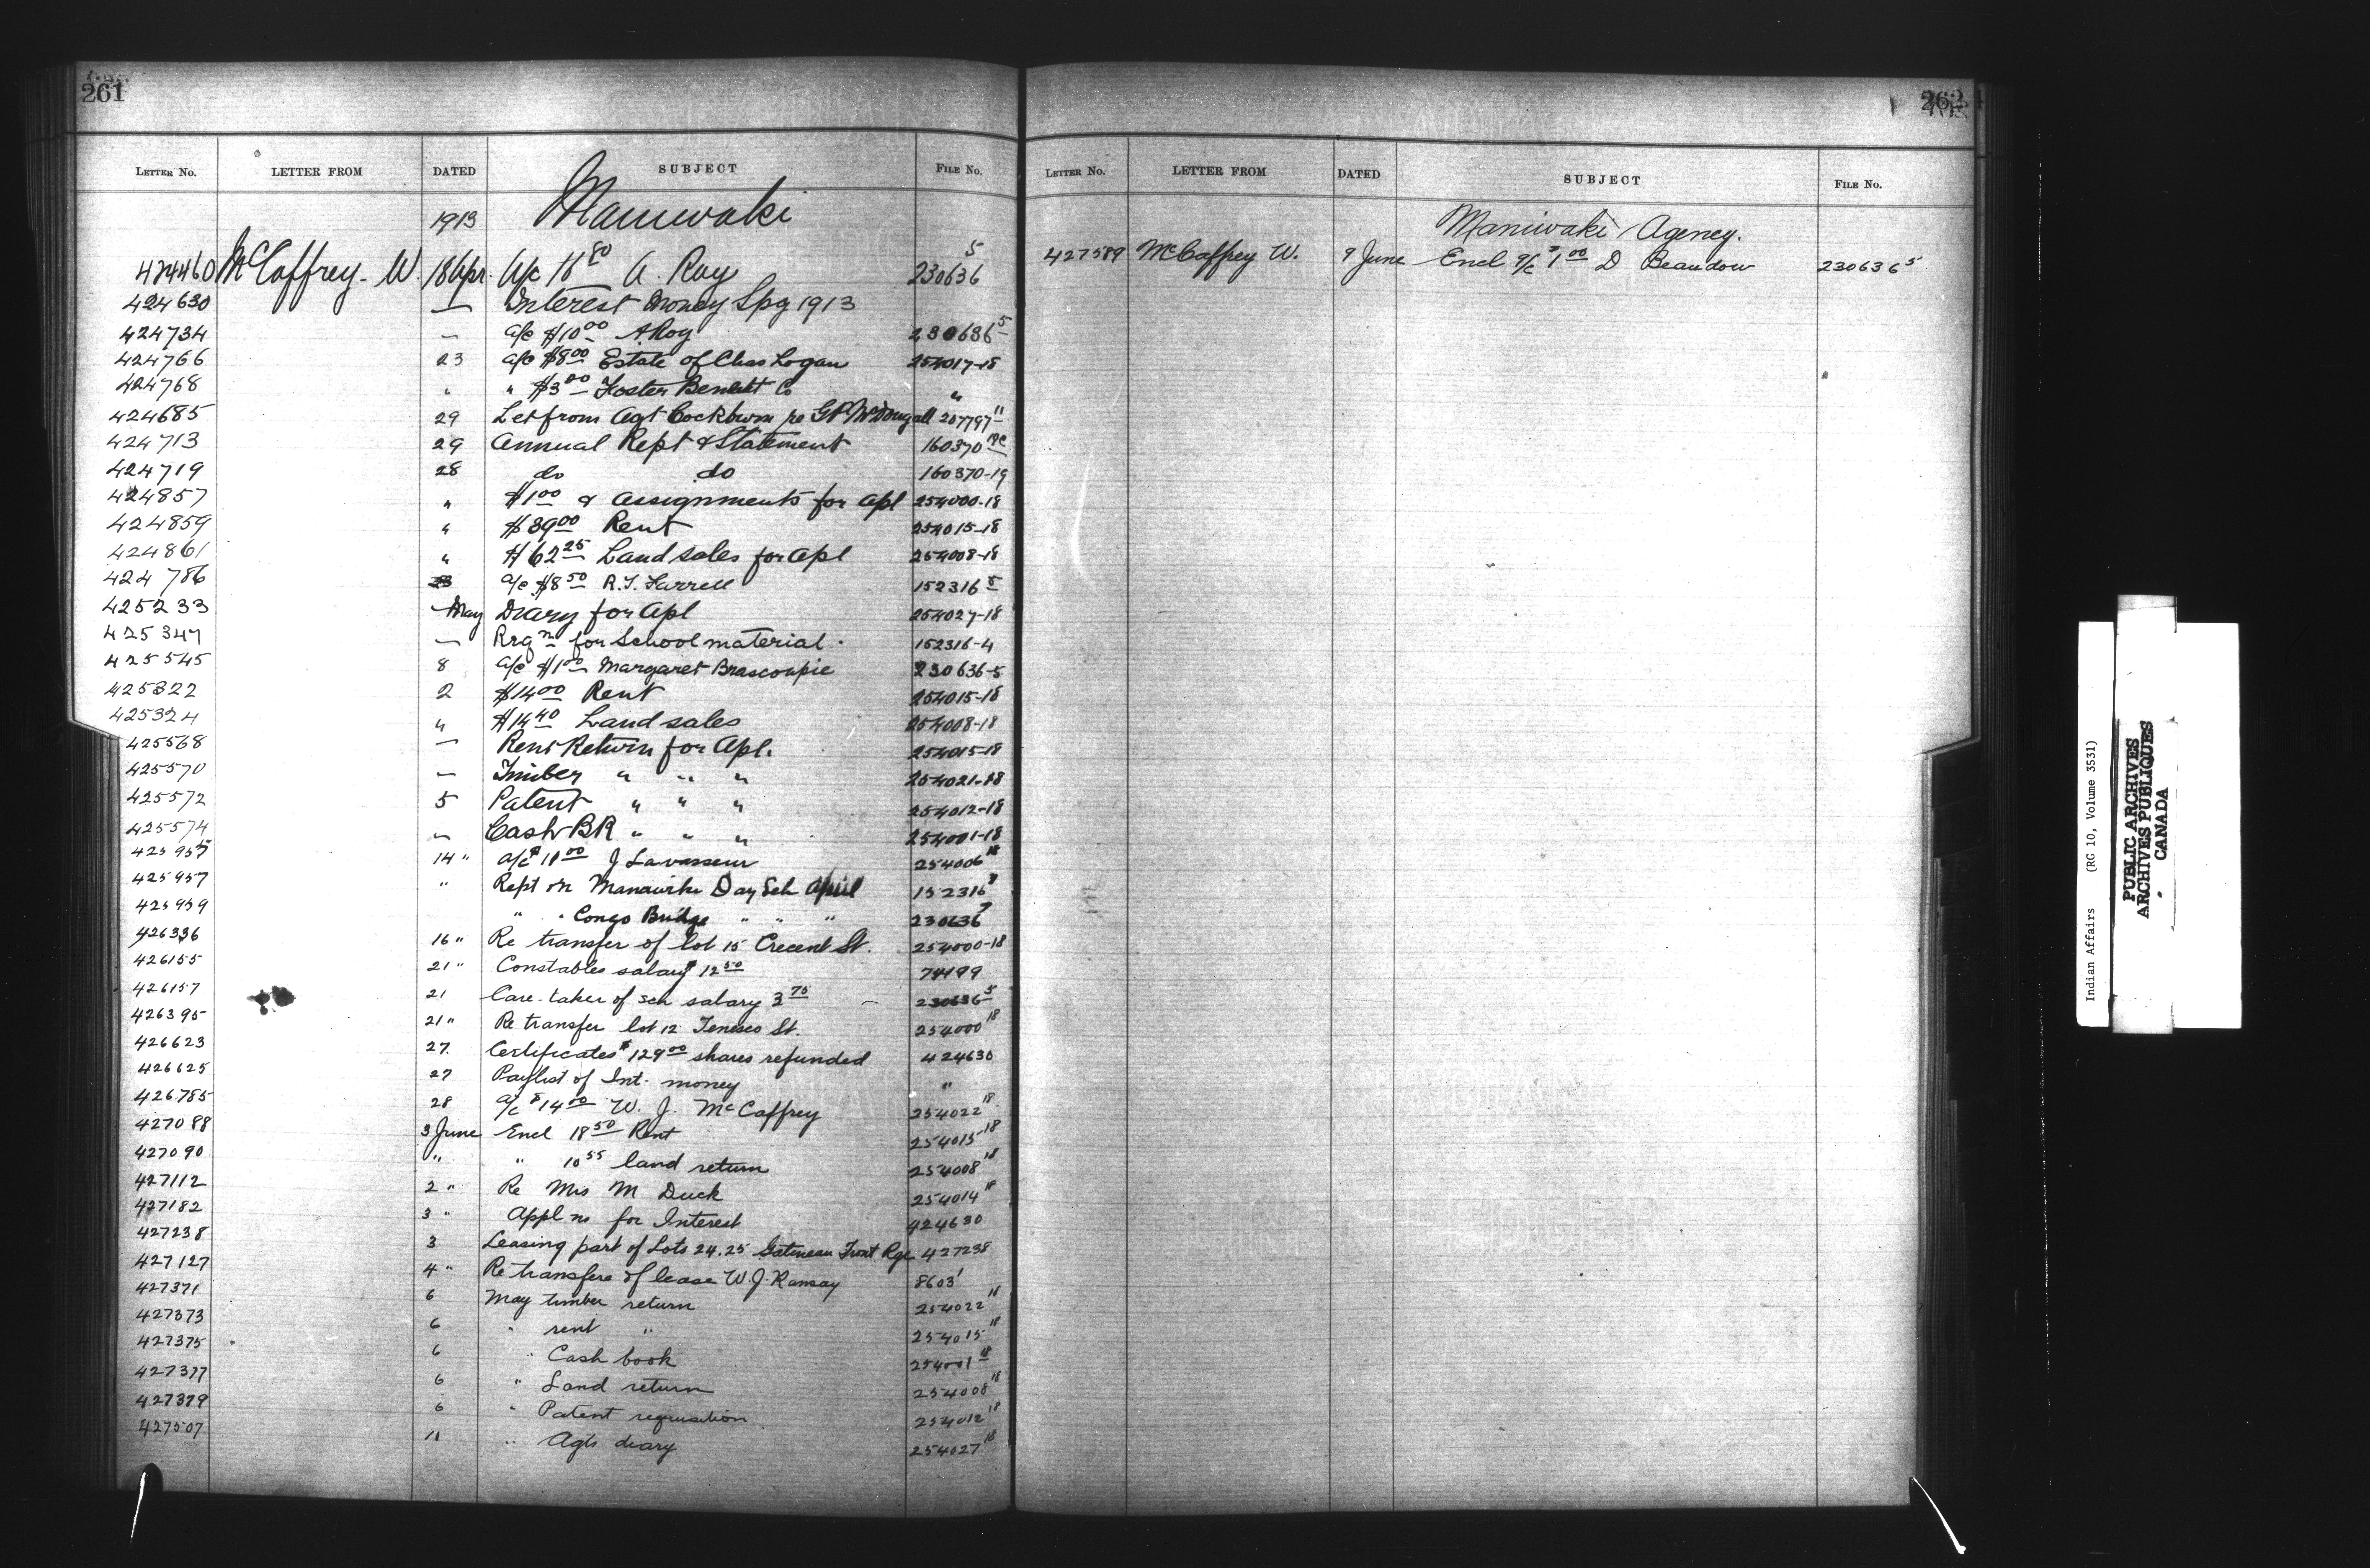 261
LETTER NO. LETTER FROM DATED SUBJECT FILE NO.
1913 Maniwaki
424460 McCaffrey. W. 18 Apr. A/c 18 80 A. Roy 230636 5
424630 — Interest Money Spg 1913
424734 — a/c $10 00 A Roy 230636 5
424766 23 a/c $8 00 Estate of Chas Logan 254017-18
424768 " " $3 00 Foster Bennett Co "
424685 29 Let from Agt Cockburn re G P McDougall 207797 11
424713 29 Annual Rept & Statement 160370
424719 28 do do 160370-19
424857 " $1 00 & assignments for Apl 254000-18
424859 " $39 00 Rent 254015-18
424861 " $62 25 Land sales for Apl 254008-18
424786 23 a/c $8 50 R.J. Farrell 152316 5
425233 — May Diary for Apl 254027-18
425347 — Rrqn for School material. 152316-4
425545 8 a/c $1 00 Margaret Brascoupie 230636-5
425322 2 $14 00 Rent 254015-18
425324 " $14 40 Land sales 254008-18
425568 — Rent Return for Apl. 254015-18
425570 — Timber " " " 254021-18
425572 5 Patent " " " 254012-18
425574 " Cash BR " " " 254001-18
425957 14 " a/c $18 00 J Lavasseur 254006 18
425957 " Rept on Manawiki Day Sch April 152316
425959 " " Congo Bridge " " " 230636 7
426336 16 " Re transfer of lot 15 Crecent St. 254000-18
426155 21 " Constables salary $12 50 74199
426157 21 Care-taker of sch salary 3 75 — 230636 5
426395 21 " Re transfer lot 12 Tenesco St. 254000 18
426623 27. Certificates $129 00 shares refunded 424630
426625 27 Paylist of Int. money "
426785 28 a/c $14 00 W. J. McCaffrey 254022 18
427088 3 June Encl 18 50 Rent 254015 18
427090 " " 10 55 land return 254008 18
427112 2 " Re Mrs M Duck 254014 18
427182 3 " Appl ns for Interest 424630
427238 3 Leasing part of Lots 24.25 Gatineau Front Rge 427238
427127 4 " Re transfere of lease W.J. Ramsay 8603
427371 6 May timber return 254022 18
427373 6 " rent " 254015 18
427375 6 " Cash book 254001 18
427377 6 " Land return 254008 18
427379 6 " Patent requisition 254012 18
427507 11 " Agts diary 254027 18
262
LETTER NO. LETTER FROM DATED SUBJECT FILE NO.
Maniwaki Agency.
427589 McCaffrey W. 9 June Encl a/c $1 00 D Beaudow 230636 5
Indian Affairs (RG 10, Volume 3531)
PUBLIC ARCHIVES
ARCHIVES PUBLIQUES
CANADA